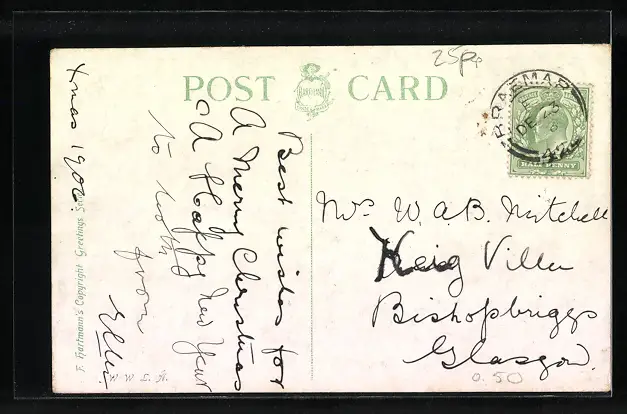 25p
POST CARD
BRAEMAR
DE 23
HALF PENNY
Xmas 1906.
Best wishes for
A Merry Christmas
& A Happy New Year
to both
from
Ellie
Mrs W. A. B. Mitchell
Keig Villa
Bishopbriggs
Glasgow.
F. Hartmann's Copyright Greetings
0.50